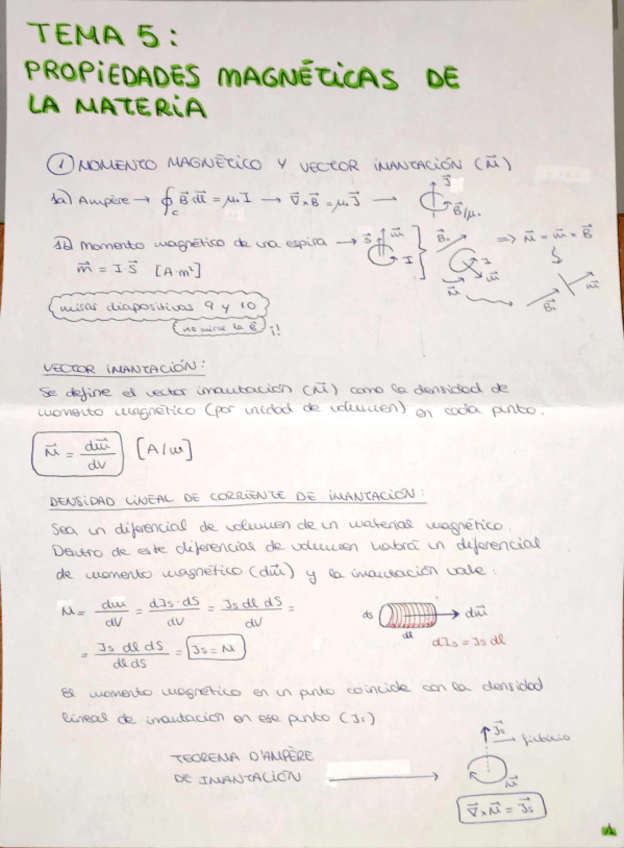 TEMA 5:
PROPIEDADES MAGNÉTICAS DE
LA MATERIA
① MOMENTO MAGNÉTICO Y VECTOR IMANTACIÓN (M⃗)
1a) Ampère → ∮c B⃗ dl⃗ = μ₀I → ∇⃗×B⃗ = μ₀J⃗ → J⃗ B⃗/μ₀
1b) Momento magnético de una espira → S⃗ m⃗ I B⃗₀ I m⃗ M⃗ => M⃗ = m⃗ × B⃗
m⃗ = I·S⃗ [A·m²] B⃗₀ m⃗
mirar diapositivas 9 y 10
no mirar la 8 ¡!
VECTOR IMANTACIÓN:
Se define el vector imantación (M⃗) como la densidad de
momento magnético (por unidad de volumen) en cada punto.
M⃗ = dm⃗/dV [A/m]
DENSIDAD LINEAL DE CORRIENTE DE IMANTACIÓN:
Sea un diferencial de volumen de un material magnético.
Dentro de este diferencial de volumen habrá un diferencial
de momento magnético (dm⃗) y la imantación vale:
M = dm/dV = dIs·dS/dV = Js dl dS/dV =
ds dl dm⃗
= Js dl dS/dl dS = Js = M
dIs = Js dl
El momento magnético en un punto coincide con la densidad
lineal de imantación en ese punto (Js)
TEOREMA D'AMPÈRE
DE IMANTACIÓN → J⃗s → ficticio
M⃗
∇⃗×M⃗ = J⃗s
1